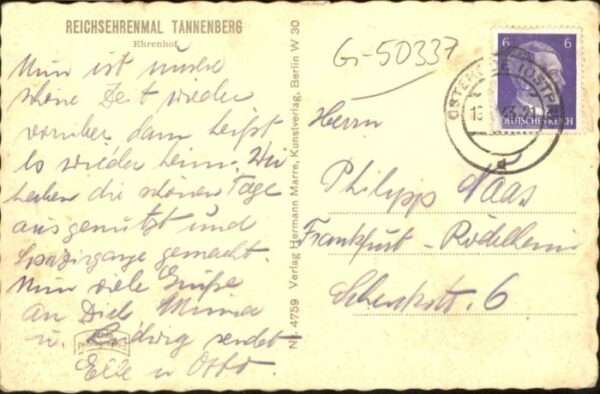 REICHSEHRENMAL TANNENBERG
Ehrenhof
Nun ist unsere
schöne Zeit wieder
vorüber, dann heißt
es wieder heim. Wir
haben die schönen Tage
ausgenützt und
Spaziergänge gemacht.
Nun viele Grüße
an Dich Minna
u. Ludwig sendet
Elle u. Otto.
Nr. 4759 Verlag Hermann Marre, Kunstverlag, Berlin W 30
G-50337
6 6
DEUTSCHES REICH
OSTERODE (OSTPR
Herrn
Philipp Naas
Frankfurt-Rödelheim
6